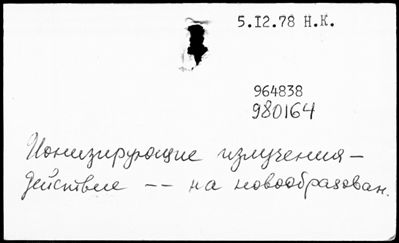 5.I2.78 Н.К.
964838
980164
Ионизирующие излучения –
действие -- на новообразован.